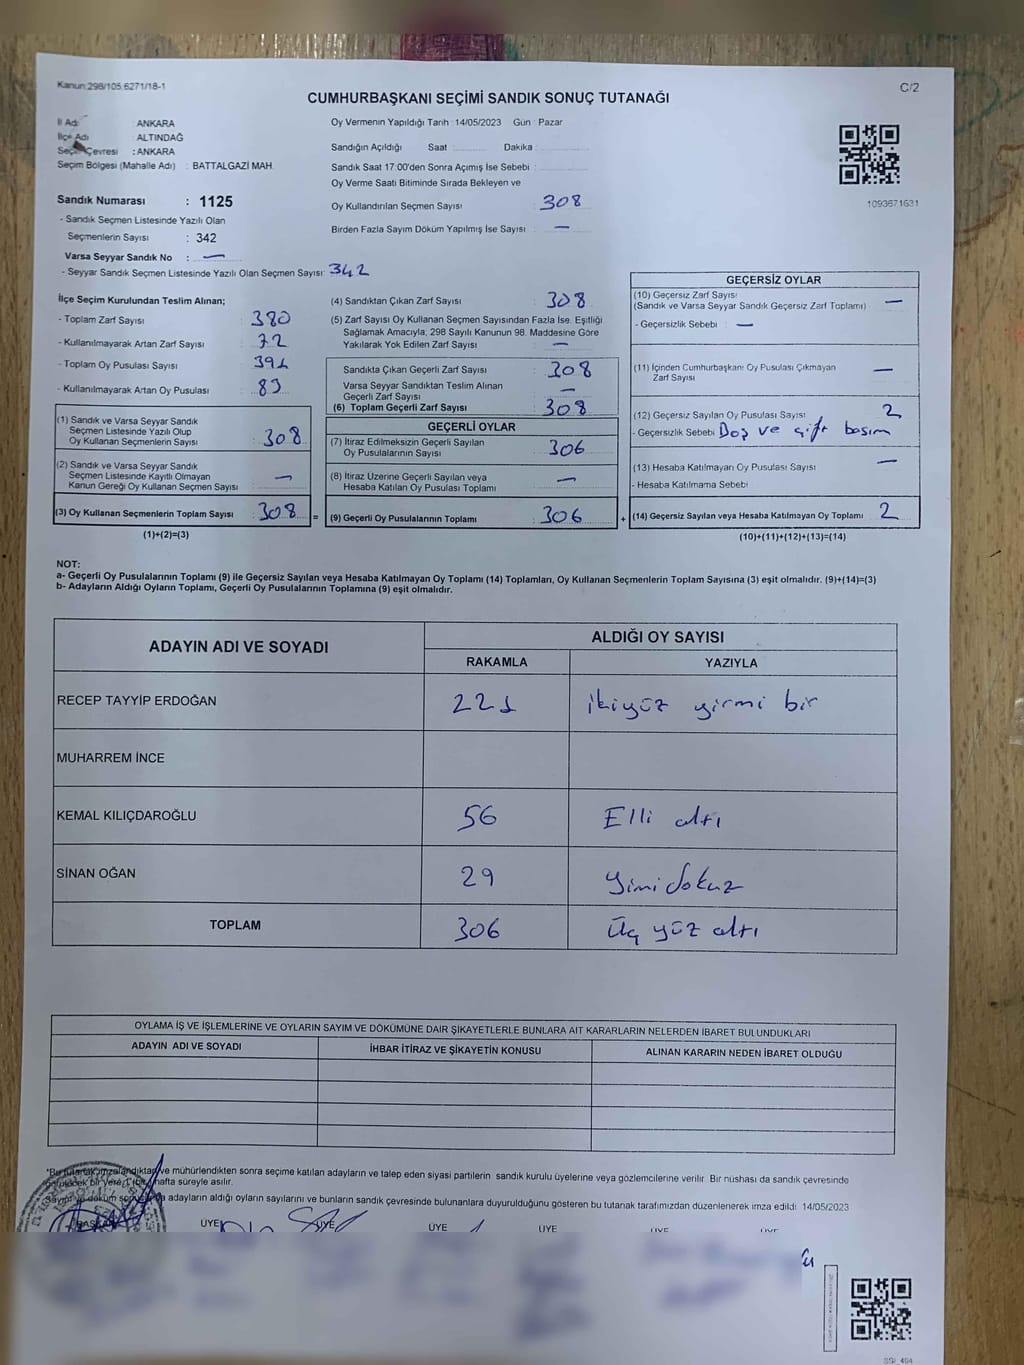 Kanun:298/105,6271/18-1
C/2
CUMHURBAŞKANI SEÇİMİ SANDIK SONUÇ TUTANAĞI
İl Adı : ANKARA
İlçe Adı : ALTINDAĞ
Seçim Çevresi : ANKARA
Seçim Bölgesi (Mahalle Adı) : BATTALGAZİ MAH.
Oy Vermenin Yapıldığı Tarih :14/05/2023 Gün : Pazar
Sandığın Açıldığı Saat Dakika
Sandık Saat 17:00'den Sonra Açımış İse Sebebi :
Oy Verme Saati Bitiminde Sırada Bekleyen ve
Oy Kullandırılan Seçmen Sayısı : 308
Birden Fazla Sayım Döküm Yapılmış İse Sayısı : —
1093671631
Sandık Numarası : 1125
- Sandık Seçmen Listesinde Yazılı Olan
Seçmenlerin Sayısı : 342
Varsa Seyyar Sandık No : —
- Seyyar Sandık Seçmen Listesinde Yazılı Olan Seçmen Sayısı: 342
İlçe Seçim Kurulundan Teslim Alınan;
- Toplam Zarf Sayısı : 380
- Kullanılmayarak Artan Zarf Sayısı : 72
- Toplam Oy Pusulası Sayısı : 391
- Kullanılmayarak Artan Oy Pusulası : 83
(1) Sandık ve Varsa Seyyar Sandık
Seçmen Listesinde Yazılı Olup
Oy Kullanan Seçmenlerin Sayısı : 308
(2) Sandık ve Varsa Seyyar Sandık
Seçmen Listesinde Kayıtlı Olmayan
Kanun Gereği Oy Kullanan Seçmen Sayısı : —
(3) Oy Kullanan Seçmenlerin Toplam Sayısı : 308 =
(1)+(2)=(3)
(4) Sandıktan Çıkan Zarf Sayısı : 308
(5) Zarf Sayısı Oy Kullanan Seçmen Sayısından Fazla İse, Eşitliği
Sağlamak Amacıyla, 298 Sayılı Kanunun 98. Maddesine Göre
Yakılarak Yok Edilen Zarf Sayısı : —
Sandıkta Çıkan Geçerli Zarf Sayısı : 308
Varsa Seyyar Sandıktan Teslim Alınan
Geçerli Zarf Sayısı : —
(6) Toplam Geçerli Zarf Sayısı : 308
GEÇERLİ OYLAR
(7) İtiraz Edilmeksizin Geçerli Sayılan
Oy Pusulalarının Sayısı : 306
(8) İtiraz Üzerine Geçerli Sayılan veya
Hesaba Katılan Oy Pusulası Toplamı : —
(9) Geçerli Oy Pusulalarının Toplamı : 306 +
GEÇERSİZ OYLAR
(10) Geçersiz Zarf Sayısı
(Sandık ve Varsa Seyyar Sandık Geçersiz Zarf Toplamı) : —
- Geçersizlik Sebebi : —
(11) İçinden Cumhurbaşkanı Oy Pusulası Çıkmayan
Zarf Sayısı : —
(12) Geçersiz Sayılan Oy Pusulası Sayısı : 2
- Geçersizlik Sebebi Boş ve çift basım
(13) Hesaba Katılmayan Oy Pusulası Sayısı : —
- Hesaba Katılmama Sebebi
(14) Geçersiz Sayılan veya Hesaba Katılmayan Oy Toplamı : 2
(10)+(11)+(12)+(13)=(14)
NOT:
a- Geçerli Oy Pusulalarının Toplamı (9) ile Geçersiz Sayılan veya Hesaba Katılmayan Oy Toplamı (14) Toplamları, Oy Kullanan Seçmenlerin Toplam Sayısına (3) eşit olmalıdır. (9)+(14)=(3)
b- Adayların Aldığı Oyların Toplamı, Geçerli Oy Pusulalarının Toplamına (9) eşit olmalıdır.
ADAYIN ADI VE SOYADI
ALDIĞI OY SAYISI
RAKAMLA YAZIYLA
RECEP TAYYİP ERDOĞAN 221 ikiyüz yirmi bir
MUHARREM İNCE
KEMAL KILIÇDAROĞLU 56 Elli altı
SİNAN OĞAN 29 yimi dokuz
TOPLAM 306 Üç yüz altı
OYLAMA İŞ VE İŞLEMLERİNE VE OYLARIN SAYIM VE DÖKÜMÜNE DAİR ŞİKAYETLERLE BUNLARA AİT KARARLARIN NELERDEN İBARET BULUNDUKLARI
ADAYIN ADI VE SOYADI İHBAR İTİRAZ VE ŞİKAYETİN KONUSU ALINAN KARARIN NEDEN İBARET OLDUĞU
*Bu tutanak imzalandıktan ve mühürlendikten sonra seçime katılan adayların ve talep eden siyasi partilerin sandık kurulu üyelerine veya gözlemcilerine verilir. Bir nüshası da sandık çevresinde
görülecek bir yere 1 (bir) hafta süreyle asılır.
Sayım ve döküm sonucunda adayların aldığı oyların sayılarını ve bunların sandık çevresinde bulunanlara duyurulduğunu gösteren bu tutanak tarafımızdan düzenlenerek imza edildi. 14/05/2023
BAŞKAN ÜYE ÜYE ÜYE ÜYE ÜYE ÜYE